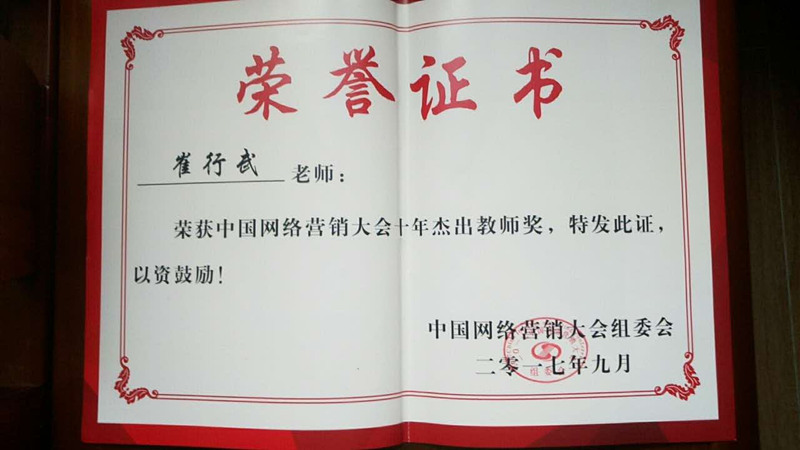 荣誉证书
崔行武 老师：
荣获中国网络营销大会十年杰出教师奖，特发此证，
以资鼓励！
中国网络营销大会组委会
二零一七年九月
组委会